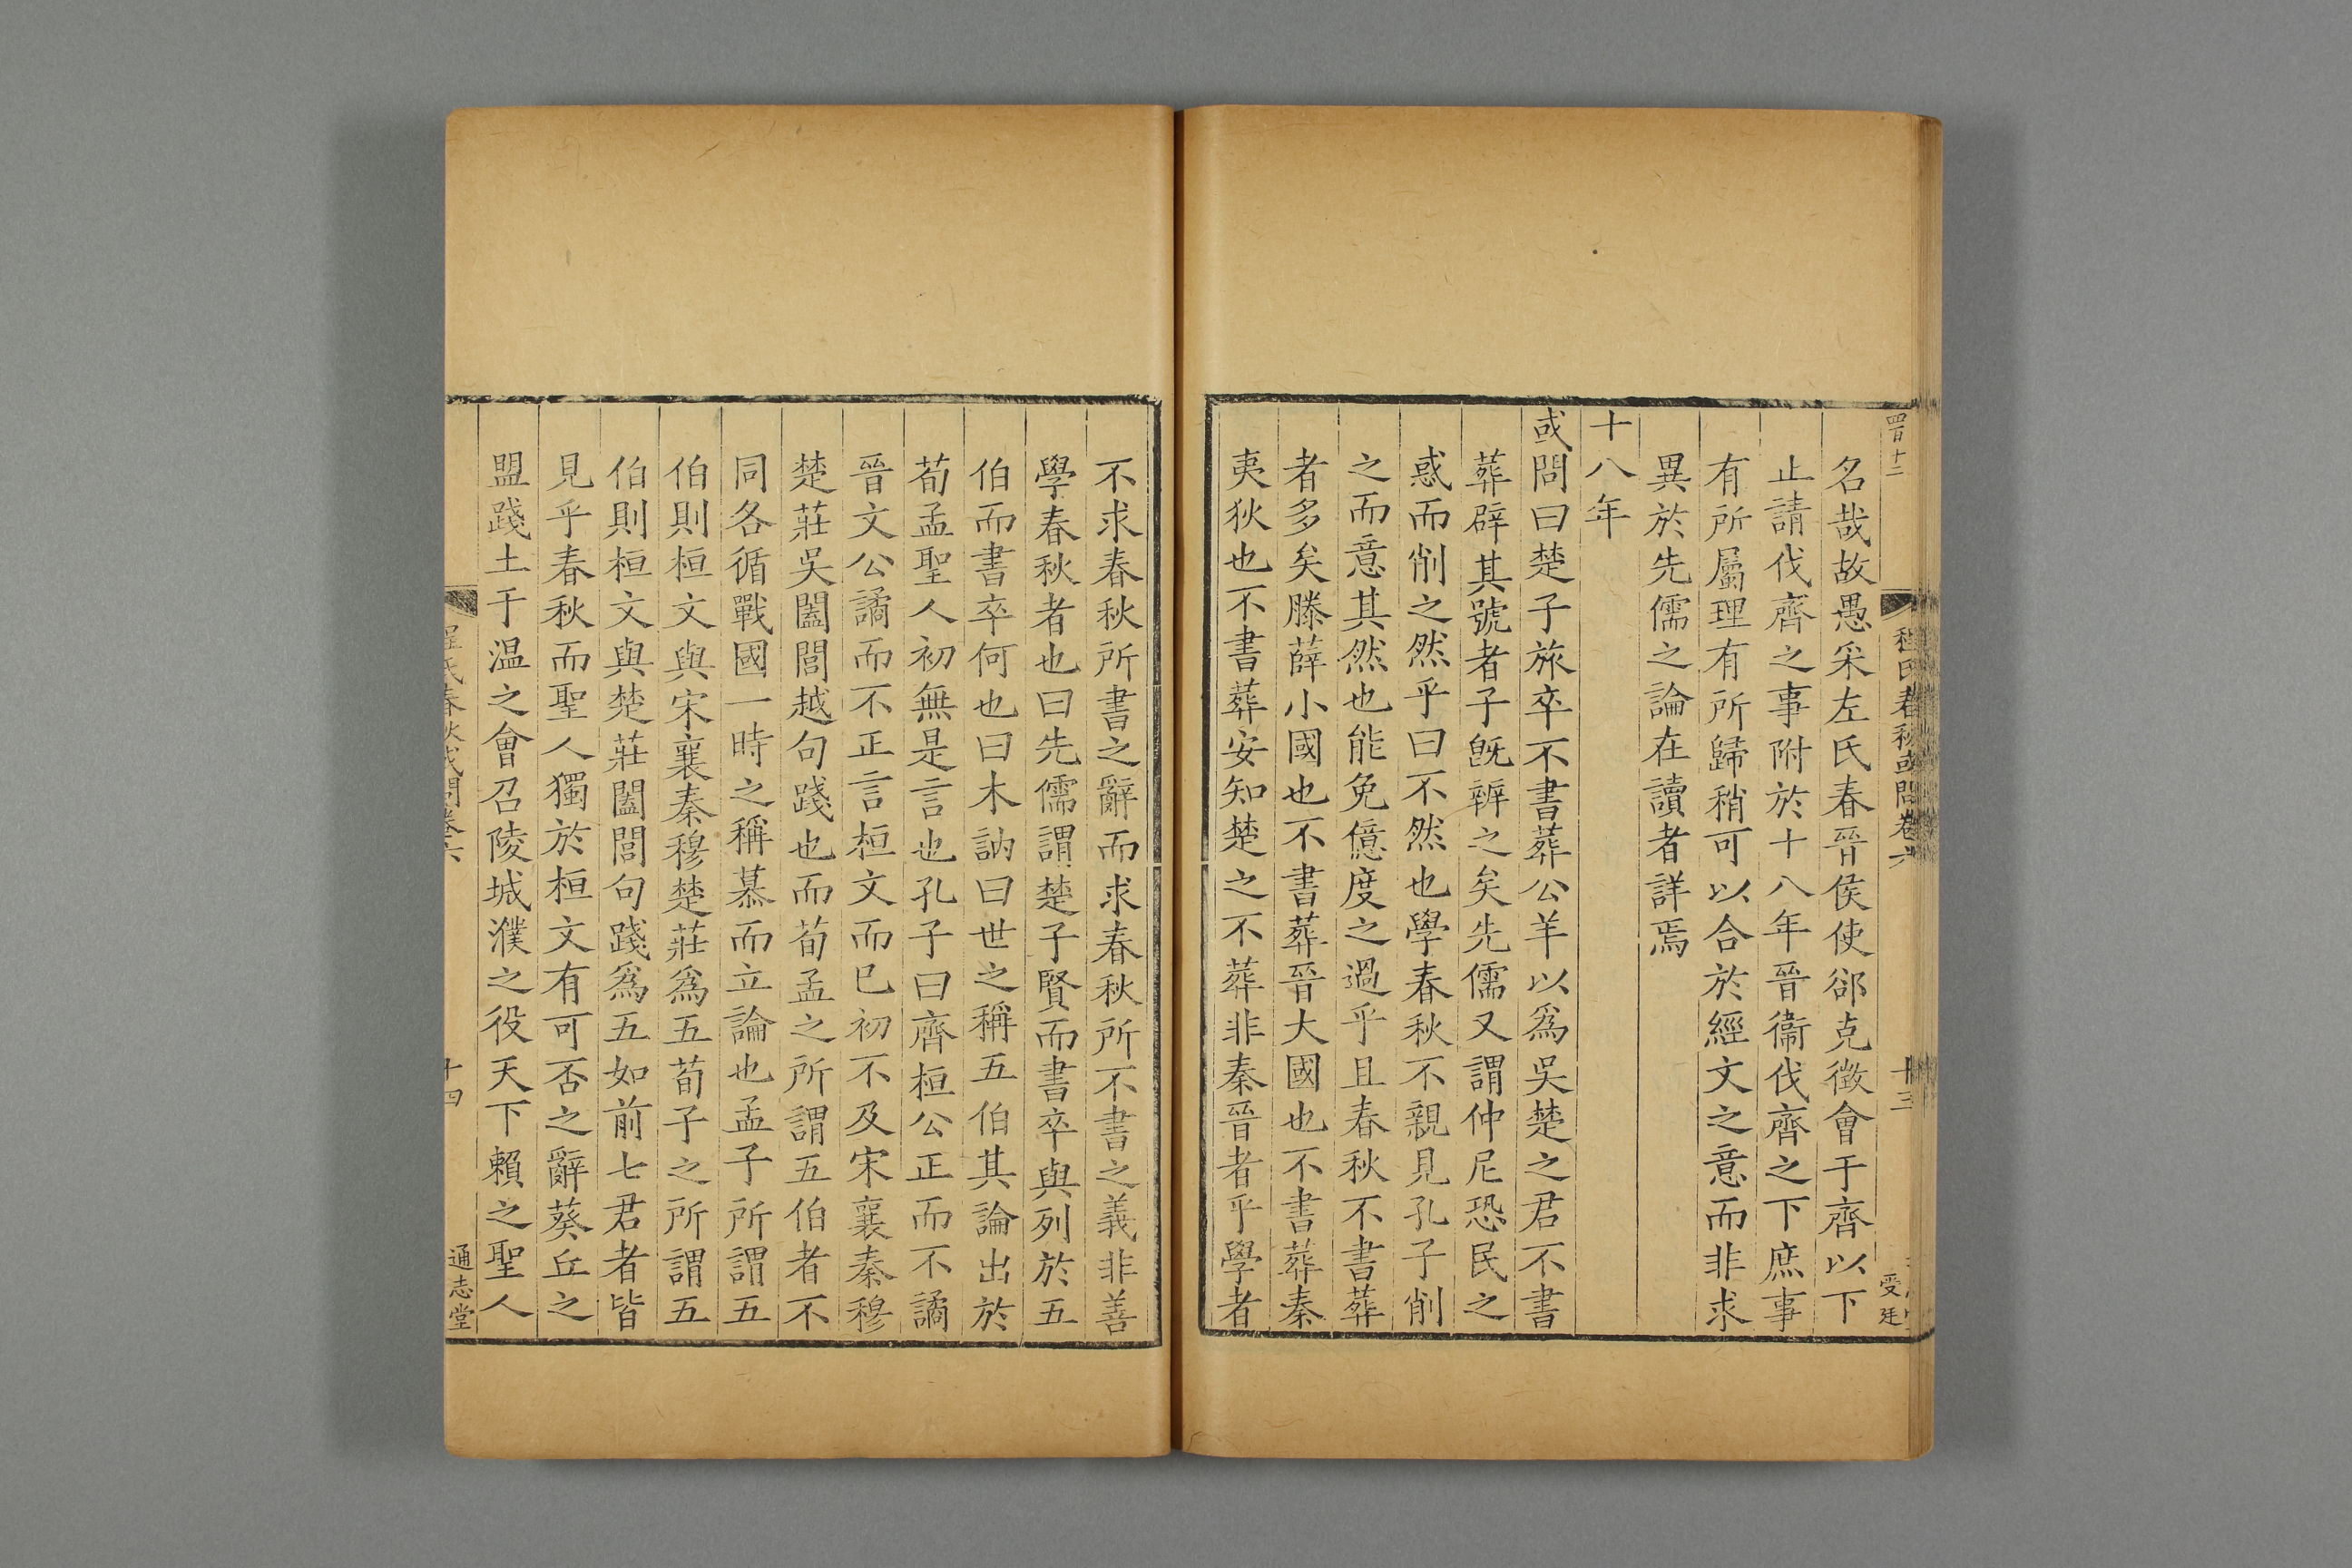 四百十二
程氏春秋或問卷六
十三
受廷
名哉故愚采左氏春晉侯使郤克徵會于齊以下
止請伐齊之事附於十八年晉衞伐齊之下庶事
有所屬理有所歸稍可以合於經文之意而非求
異於先儒之論在讀者詳焉
十八年
或問曰楚子旅卒不書葬公羊以爲吳楚之君不書
葬辟其號者子旣辨之矣先儒又謂仲尼恐民之
惑而削之然乎曰不然也學春秋不親見孔子削
之而意其然也能免億度之過乎且春秋不書葬
者多矣滕薛小國也不書葬晉大國也不書葬秦
夷狄也不書葬安知楚之不葬非秦晉者乎學者
不求春秋所書之辭而求春秋所不書之義非善
學春秋者也曰先儒謂楚子賢而書卒與列於五
伯而書卒何也曰木訥曰世之稱五伯其論出於
荀孟聖人初無是言也孔子曰齊桓公正而不譎
晉文公譎而不正言桓文而已初不及宋襄秦穆
楚莊吳闔閭越句踐也而荀孟之所謂五伯者不
同各循戰國一時之稱慕而立論也孟子所謂五
伯則桓文與宋襄秦穆楚莊爲五荀子之所謂五
伯則桓文與楚莊闔閭句踐爲五如前七君者皆
見乎春秋而聖人獨於桓文有可否之辭葵丘之
盟踐土于温之會召陵城濮之役天下賴之聖人
程氏春秋或問卷六
十四
通志堂